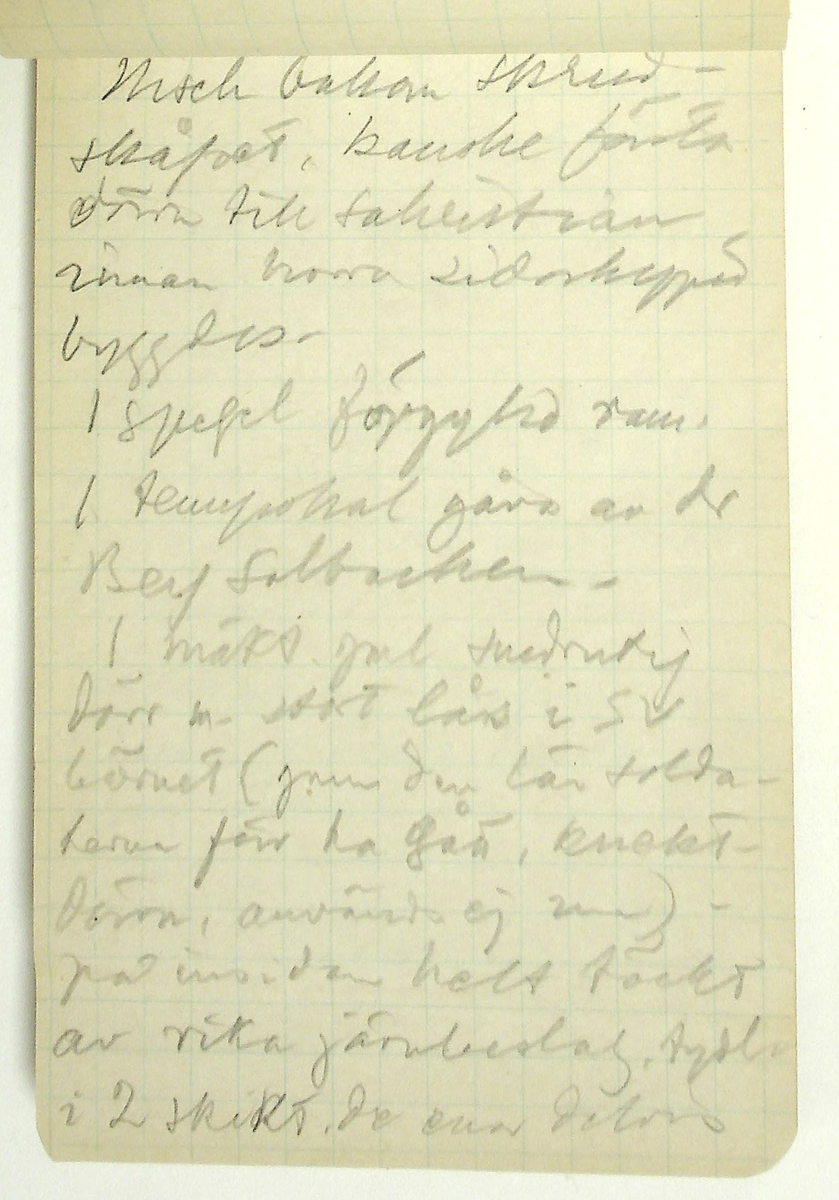 Nisch bakom skrud-
skåpet, kanske första
dörrn till sakristian
innan norra sidoskeppet
byggdes -
1 spegel förgylld ram.
1 tempokal gåva av dr
Berg Solbacken -
1 mäkt. gml snedrutig
dörr m. stort lås i SV
hörnet (gnm den lär solda-
terna förr ha gått, knekt-
dörrn, används ej nu) -
på insidan helt täckt
av rika järnbeslag, tydl.
i 2 skikt, de ena delvis